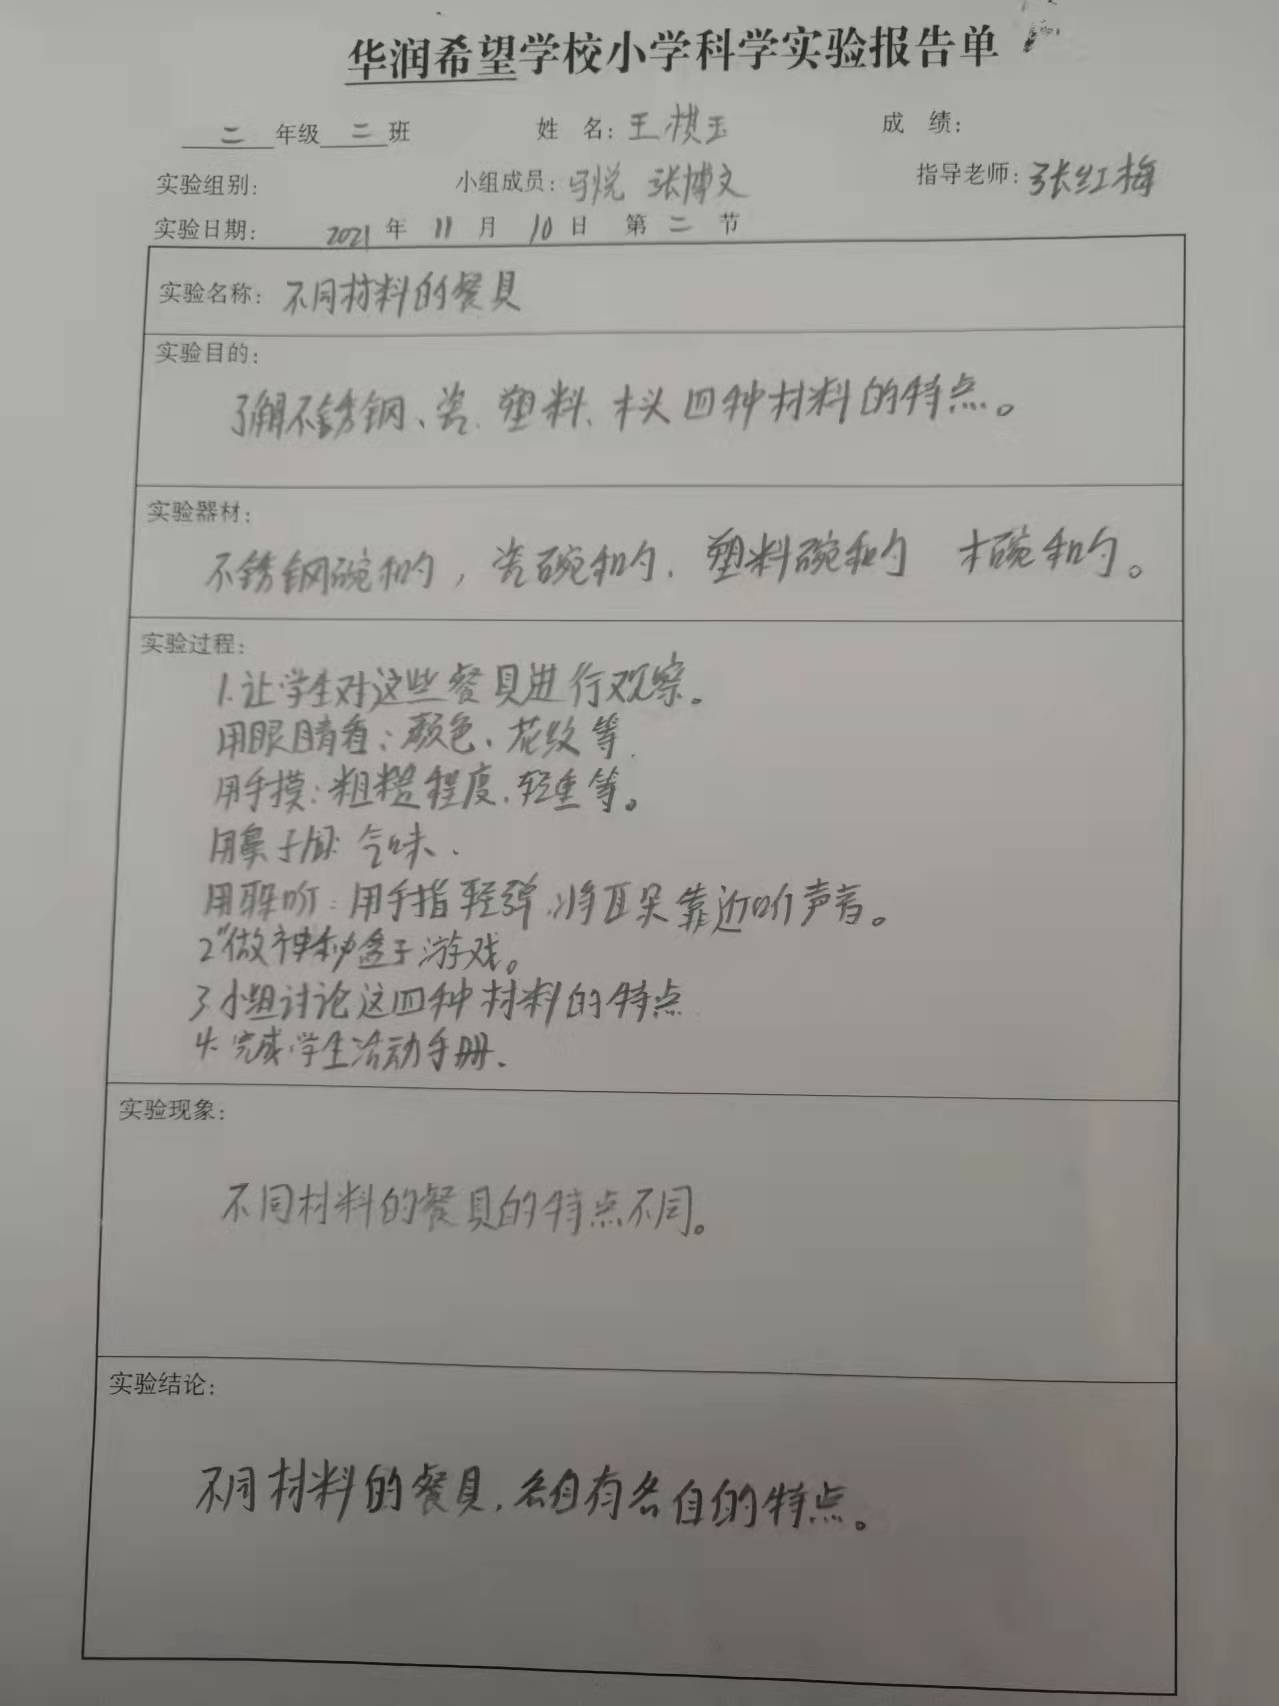 华润希望学校小学科学实验报告单
二年级二班 姓 名：王棋玉 成 绩：
实验组别： 小组成员：马悦 张博文 指导老师：张红梅
实验日期： 2021年 11月 10日 第 二 节
实验名称：不同材料的餐具
实验目的：
了解不锈钢、瓷、塑料、木头四种材料的特点。
实验器材：
不锈钢碗和勺，瓷碗和勺、塑料碗和勺 木碗和勺。
实验过程：
1.让学生对这些餐具进行观察。
用眼睛看：颜色、花纹等.
用手摸：粗糙程度、轻重等。
用鼻子闻：气味.
用耳朵听：用手指轻弹，将耳朵靠近听声音。
2“做神秘盒子游戏。
3.小组讨论这四种材料的特点
4.完成学生活动手册.
实验现象：
不同材料的餐具的特点不同。
实验结论：
不同材料的餐具，各自有各自的特点。